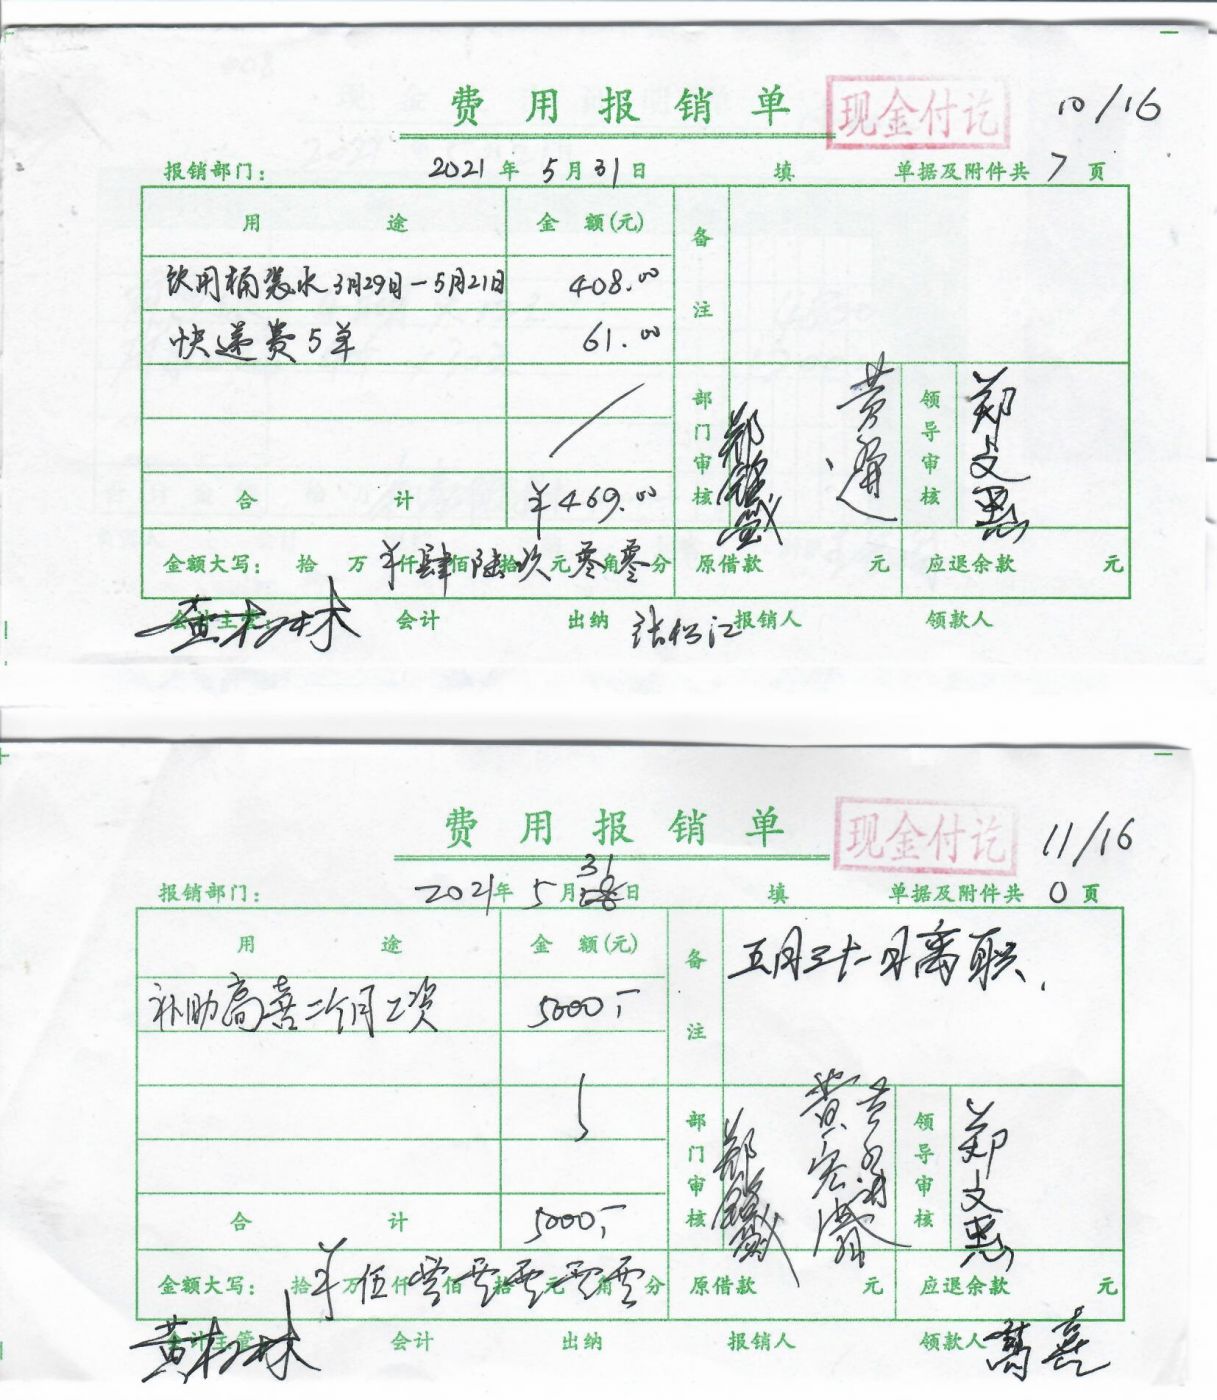 费用报销单 现金付讫 10/16
报销部门： 2021年5月31日 填 单据及附件共7页
用途 金额(元) 备注
饮用桶装水3月29日-5月21日 408.00
快递费5单 61.00
部门审核 领导审核 郑文忠
合计 ¥469.00
金额大写： 拾万¥仟肆佰陆拾玖元零角零分 原借款 元 应退余款 元
会计主管： 会计 出纳 张松江 报销人 领款人
费用报销单 现金付讫 11/16
报销部门： 2021年5月31日 填 单据及附件共0页
用途 金额(元) 备注 五月三十一日离职.
补助高喜二个月工资 5000,-
部门审核 领导审核 郑文忠
合计 5000,-
金额大写： 拾¥万伍仟零佰零拾零元零角零分 原借款 元 应退余款 元
会计主管： 会计 出纳 报销人 领款人 高喜